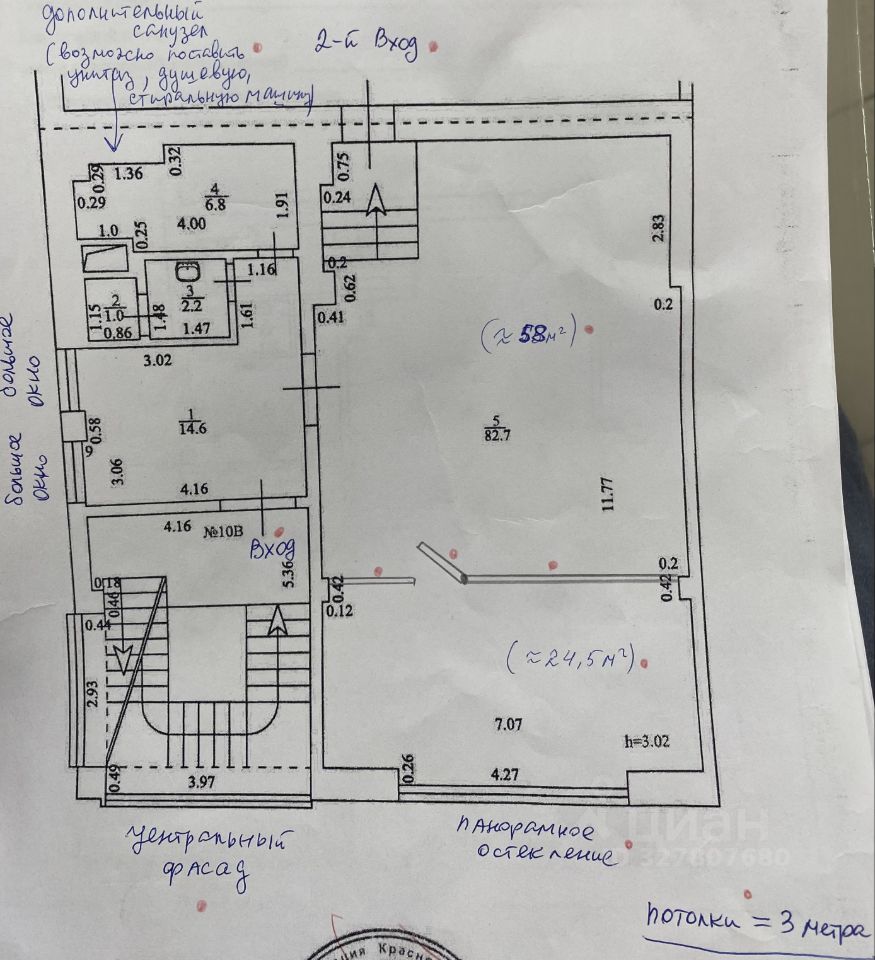 дополнительный
санузел
(возможно поставить
унитаз, душевую,
стиральную машину)
2-й Вход
0.32
0.29
1.36
0.75
0.29
4
6.8
1.91
0.24
4.00
2.83
1.0
0.25
0.2
1.16
0.62
3
2.2
2
1.0
1.15
1.48
1.61
0.41
0.2
0.86
1.47
(≈58м²)
большое
окно
3.02
1
14.6
5
82.7
0.58
9
3.06
большое
окно
4.16
11.77
4.16
№10В
Вход
5.36
0.2
0.18
0.46
0.42
0.42
0.12
0.44
(≈24,5м²)
2.93
7.07
h=3.02
0.49
3.97
0.26
4.27
центральный
фасад
панорамное
остекление
циан
потолки = 3 метра
ция Красн